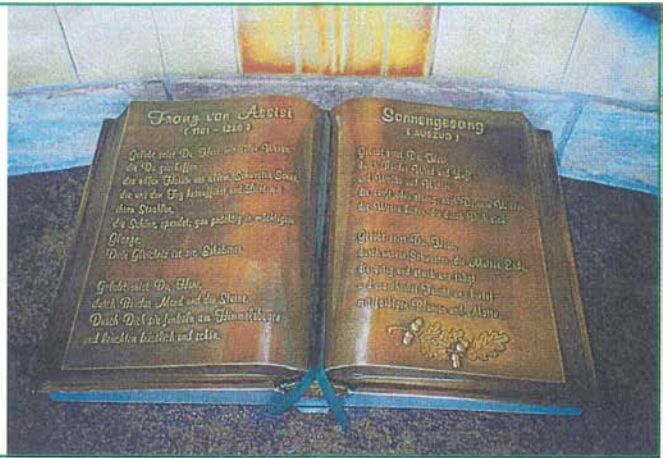 Franz von Assisi
Gelobt seist Du, Herr, mit allen Wesen,
die Du geschaffen,
der edlen Herrin vor allem, Schwester Sonne,
die uns den Tag heraufführt und Licht mit
ihren Strahlen,
die Schöne, spendet, gar prächtig in mächtigem
Glanze,
Dein Gleichnis ist sie, Erhabener.
Gelobt seist Du, Herr,
durch Bruder Mond und die Sterne.
Durch Dich sie funkeln am Himmelsbogen
und leuchten köstlich und schön.
Sonnengesang
( AUSZUG )
Gelobt seist Du, Herr,
durch Bruder Wind und Luft
und Wolke und Wetter,
die nach
Gelobt seist Du, Herr,
durch unsere Schwester, die Mutter Erde,
die gütig und stark uns trägt
und
mit farbigen Blumen und Matten.